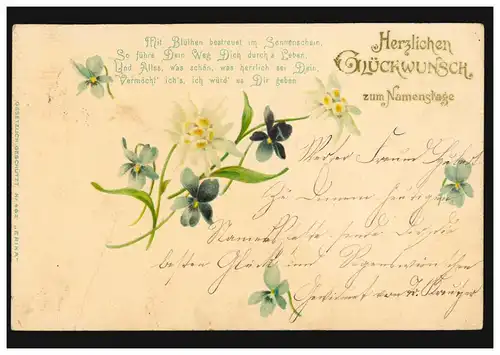 Mit Blüthen bestreuet im Sonnenschein,
So führe Dein Weg Dich durch's Leben,
Und Alles, was schön, was herrlich sei Dein,
Vermöcht' ich's, ich würd' es Dir geben
Herzlichen
GLÜCKWUNSCH
zum Namenstage
GESETZLICH GESCHÜTZT. "ERIKA"
Werther Freund
Zu Deinem heutigen
Namensfeste sende Dir die
besten Glück und Segenswünsche
Gewidmet von